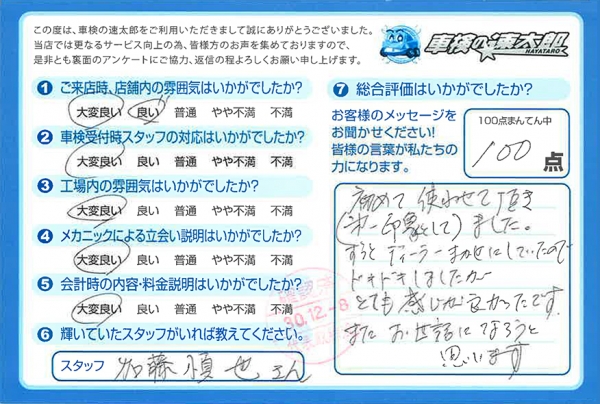 この度は、車検の速太郎をご利用いただきまして誠にありがとうございました。
当店では更なるサービス向上の為、皆様方のお声を集めておりますので、
是非とも裏面のアンケートにご協力、返信の程よろしくお願い申し上げます。
車検の速太郎
HAYATARO
1 ご来店時、店舗内の雰囲気はいかがでしたか?
大変良い 良い 普通 やや不満 不満
2 車検受付時スタッフの対応はいかがでしたか?
大変良い 良い 普通 やや不満 不満
3 工場内の雰囲気はいかがでしたか?
大変良い 良い 普通 やや不満 不満
4 メカニックによる立会い説明はいかがでしたか?
大変良い 良い 普通 やや不満 不満
5 会計時の内容・料金説明はいかがでしたか?
大変良い 良い 普通 やや不満 不満
6 輝いていたスタッフがいれば教えてください。
スタッフ 加藤順也さん
7 総合評価はいかがでしたか?
お客様のメッセージを
お聞かせください!
皆様の言葉が私たちの
力になります。
100点まんてん中
100 点
初めて使わせて頂き
(第一印象として)ました。
ずっとディーラーまかせにしていたので
ドキドキしましたが
とても感じが良かったです。
またお世話になろうと
思います
30.12.-8